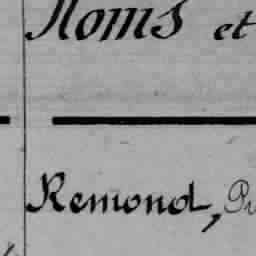 Noms et
Remond,